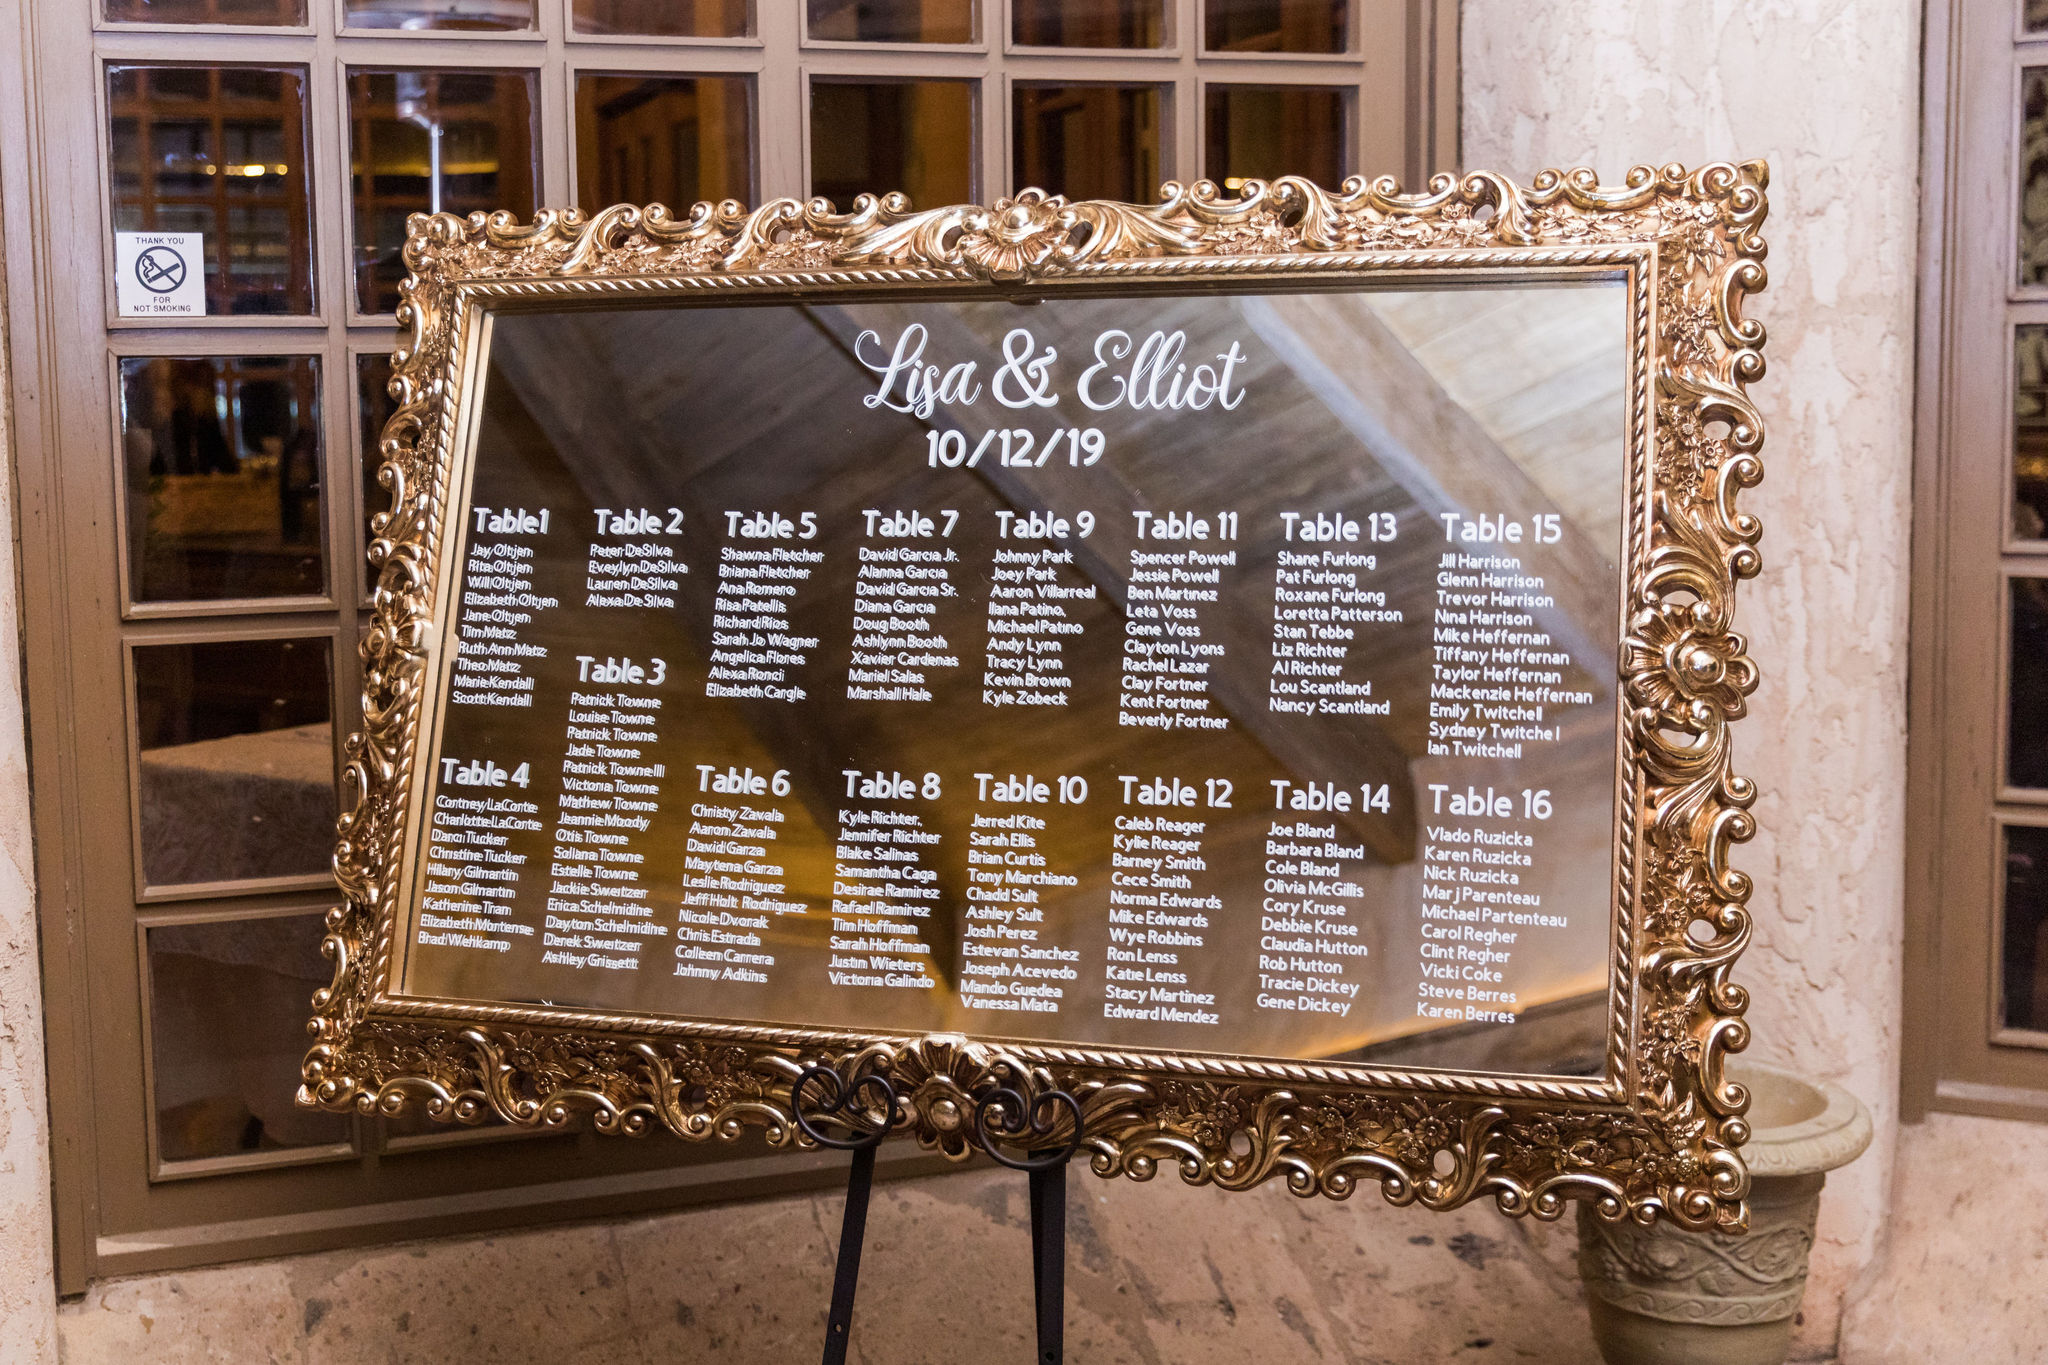 THANK YOU
FOR
NOT SMOKING
Lisa & Elliot
10/12/19
Table1
Jay Oltjen
Rita Oltjen
Will Oltjen
Elizabeth Oltjen
Jane Oltjen
Tim Matz
Ruth Ann Matz
Theo Matz
Marie Kendall
Scott Kendall
Table 2
Peter DeSilva
Eveylyn DeSilva
Lauren DeSilva
Alexa De Silva
Table 3
Patrick Towne
Louise Towne
Patrick Towne
Jade Towne
Patrick Towne III
Victoria Towne
Mathew Towne
Jeannie Moody
Otis Towne
Solana Towne
Estelle Towne
Jackie Sweitzer
Erica Schelmidine
Dayton Schelmidine
Derek Sweitzer
Ashley Grissett
Table 4
Cortney LaCorte
Charlotte LaCorte
Darci Tucker
Christine Tucker
Hilary Gilmartin
Jason Gilmartin
Katherine Tran
Elizabeth Mortense
Brad Wehkamp
Table 5
Shawna Fletcher
Briana Fletcher
Ana Romero
Risa Patellis
Richard Rios
Sarah Jo Wagner
Angelica Flores
Alexa Ronci
Elizabeth Cargle
Table 6
Christy Zavala
Aaron Zavala
David Garza
Maytena Garza
Leslie Rodriguez
Jeff Holt Rodriguez
Nicole Dvorak
Chris Estrada
Colleen Carrera
Johnny Adkins
Table 7
David Garcia Jr.
Alanna Garcia
David Garcia Sr.
Diana Garcia
Doug Booth
Ashlynn Booth
Xavier Cardenas
Mariel Salas
Marshall Hale
Table 8
Kyle Richter.
Jennifer Richter
Blake Salinas
Samantha Caga
Desirae Ramirez
Rafael Ramirez
Tim Hoffman
Sarah Hoffman
Justin Wieters
Victoria Galindo
Table 9
Johnny Park
Joey Park
Aaron Villarreal
Ilana Patino.
Michael Patino
Andy Lynn
Tracy Lynn
Kevin Brown
Kyle Zobeck
Table 10
Jerred Kite
Sarah Ellis
Brian Curtis
Tony Marchiano
Chadd Sult
Ashley Sult
Josh Perez
Estevan Sanchez
Joseph Acevedo
Mando Guedea
Vanessa Mata
Table 11
Spencer Powell
Jessie Powell
Ben Martinez
Leta Voss
Gene Voss
Clayton Lyons
Rachel Lazar
Clay Fortner
Kent Fortner
Beverly Fortner
Table 12
Caleb Reager
Kylie Reager
Barney Smith
Cece Smith
Norma Edwards
Mike Edwards
Wye Robbins
Ron Lenss
Katie Lenss
Stacy Martinez
Edward Mendez
Table 13
Shane Furlong
Pat Furlong
Roxane Furlong
Loretta Patterson
Stan Tebbe
Liz Richter
Al Richter
Lou Scantland
Nancy Scantland
Table 14
Joe Bland
Barbara Bland
Cole Bland
Olivia McGillis
Cory Kruse
Debbie Kruse
Claudia Hutton
Rob Hutton
Tracie Dickey
Gene Dickey
Table 15
Jill Harrison
Glenn Harrison
Trevor Harrison
Nina Harrison
Mike Heffernan
Tiffany Heffernan
Taylor Heffernan
Mackenzie Heffernan
Emily Twitchell
Sydney Twitche l
Ian Twitchell
Table 16
Vlado Ruzicka
Karen Ruzicka
Nick Ruzicka
Marj Parenteau
Michael Partenteau
Carol Regher
Clint Regher
Vicki Coke
Steve Berres
Karen Berres